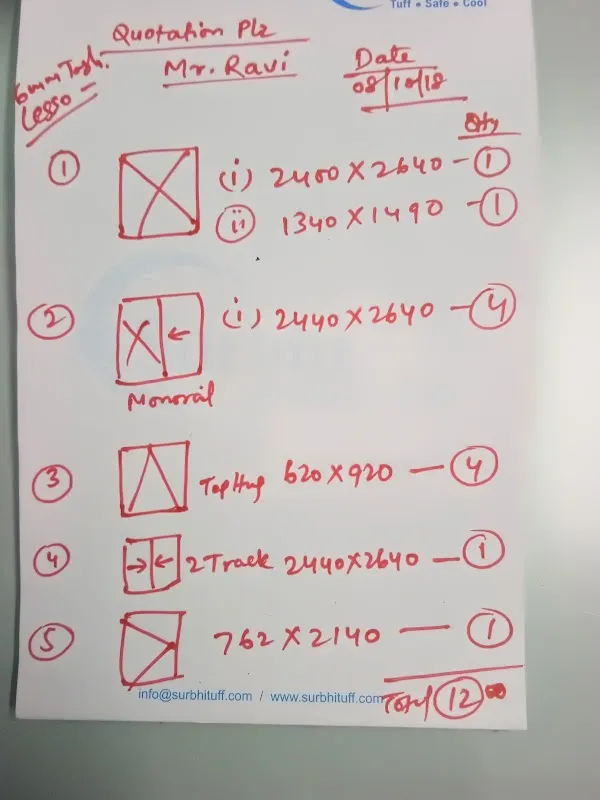 Tuff • Safe • Cool
Quotation Plz
Mr. Ravi
Date
08/10/18
6mm Tough.
Lesso
Qty
1 (i) 2400 X 2640 - 1
ii 1340 X 1490 - 1
2 X ← (i) 2440 X 2640 - 4
Monorail
3 Top Hung 620 X 920 - 4
4 → ← 2 Track 2440 X 2640 - 1
5 762 X 2140 - 1
info@surbhituff.com / www.surbhituff.com
Total 12